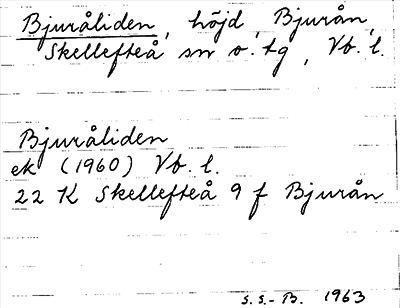 Bjuråliden, höjd, Bjurån,
Skellefteå sn o. tg, Vb. l.
Bjuråliden
ek (1960) Vb. l.
22 K Skellefteå 9 f Bjurån
S. S.-B. 1963